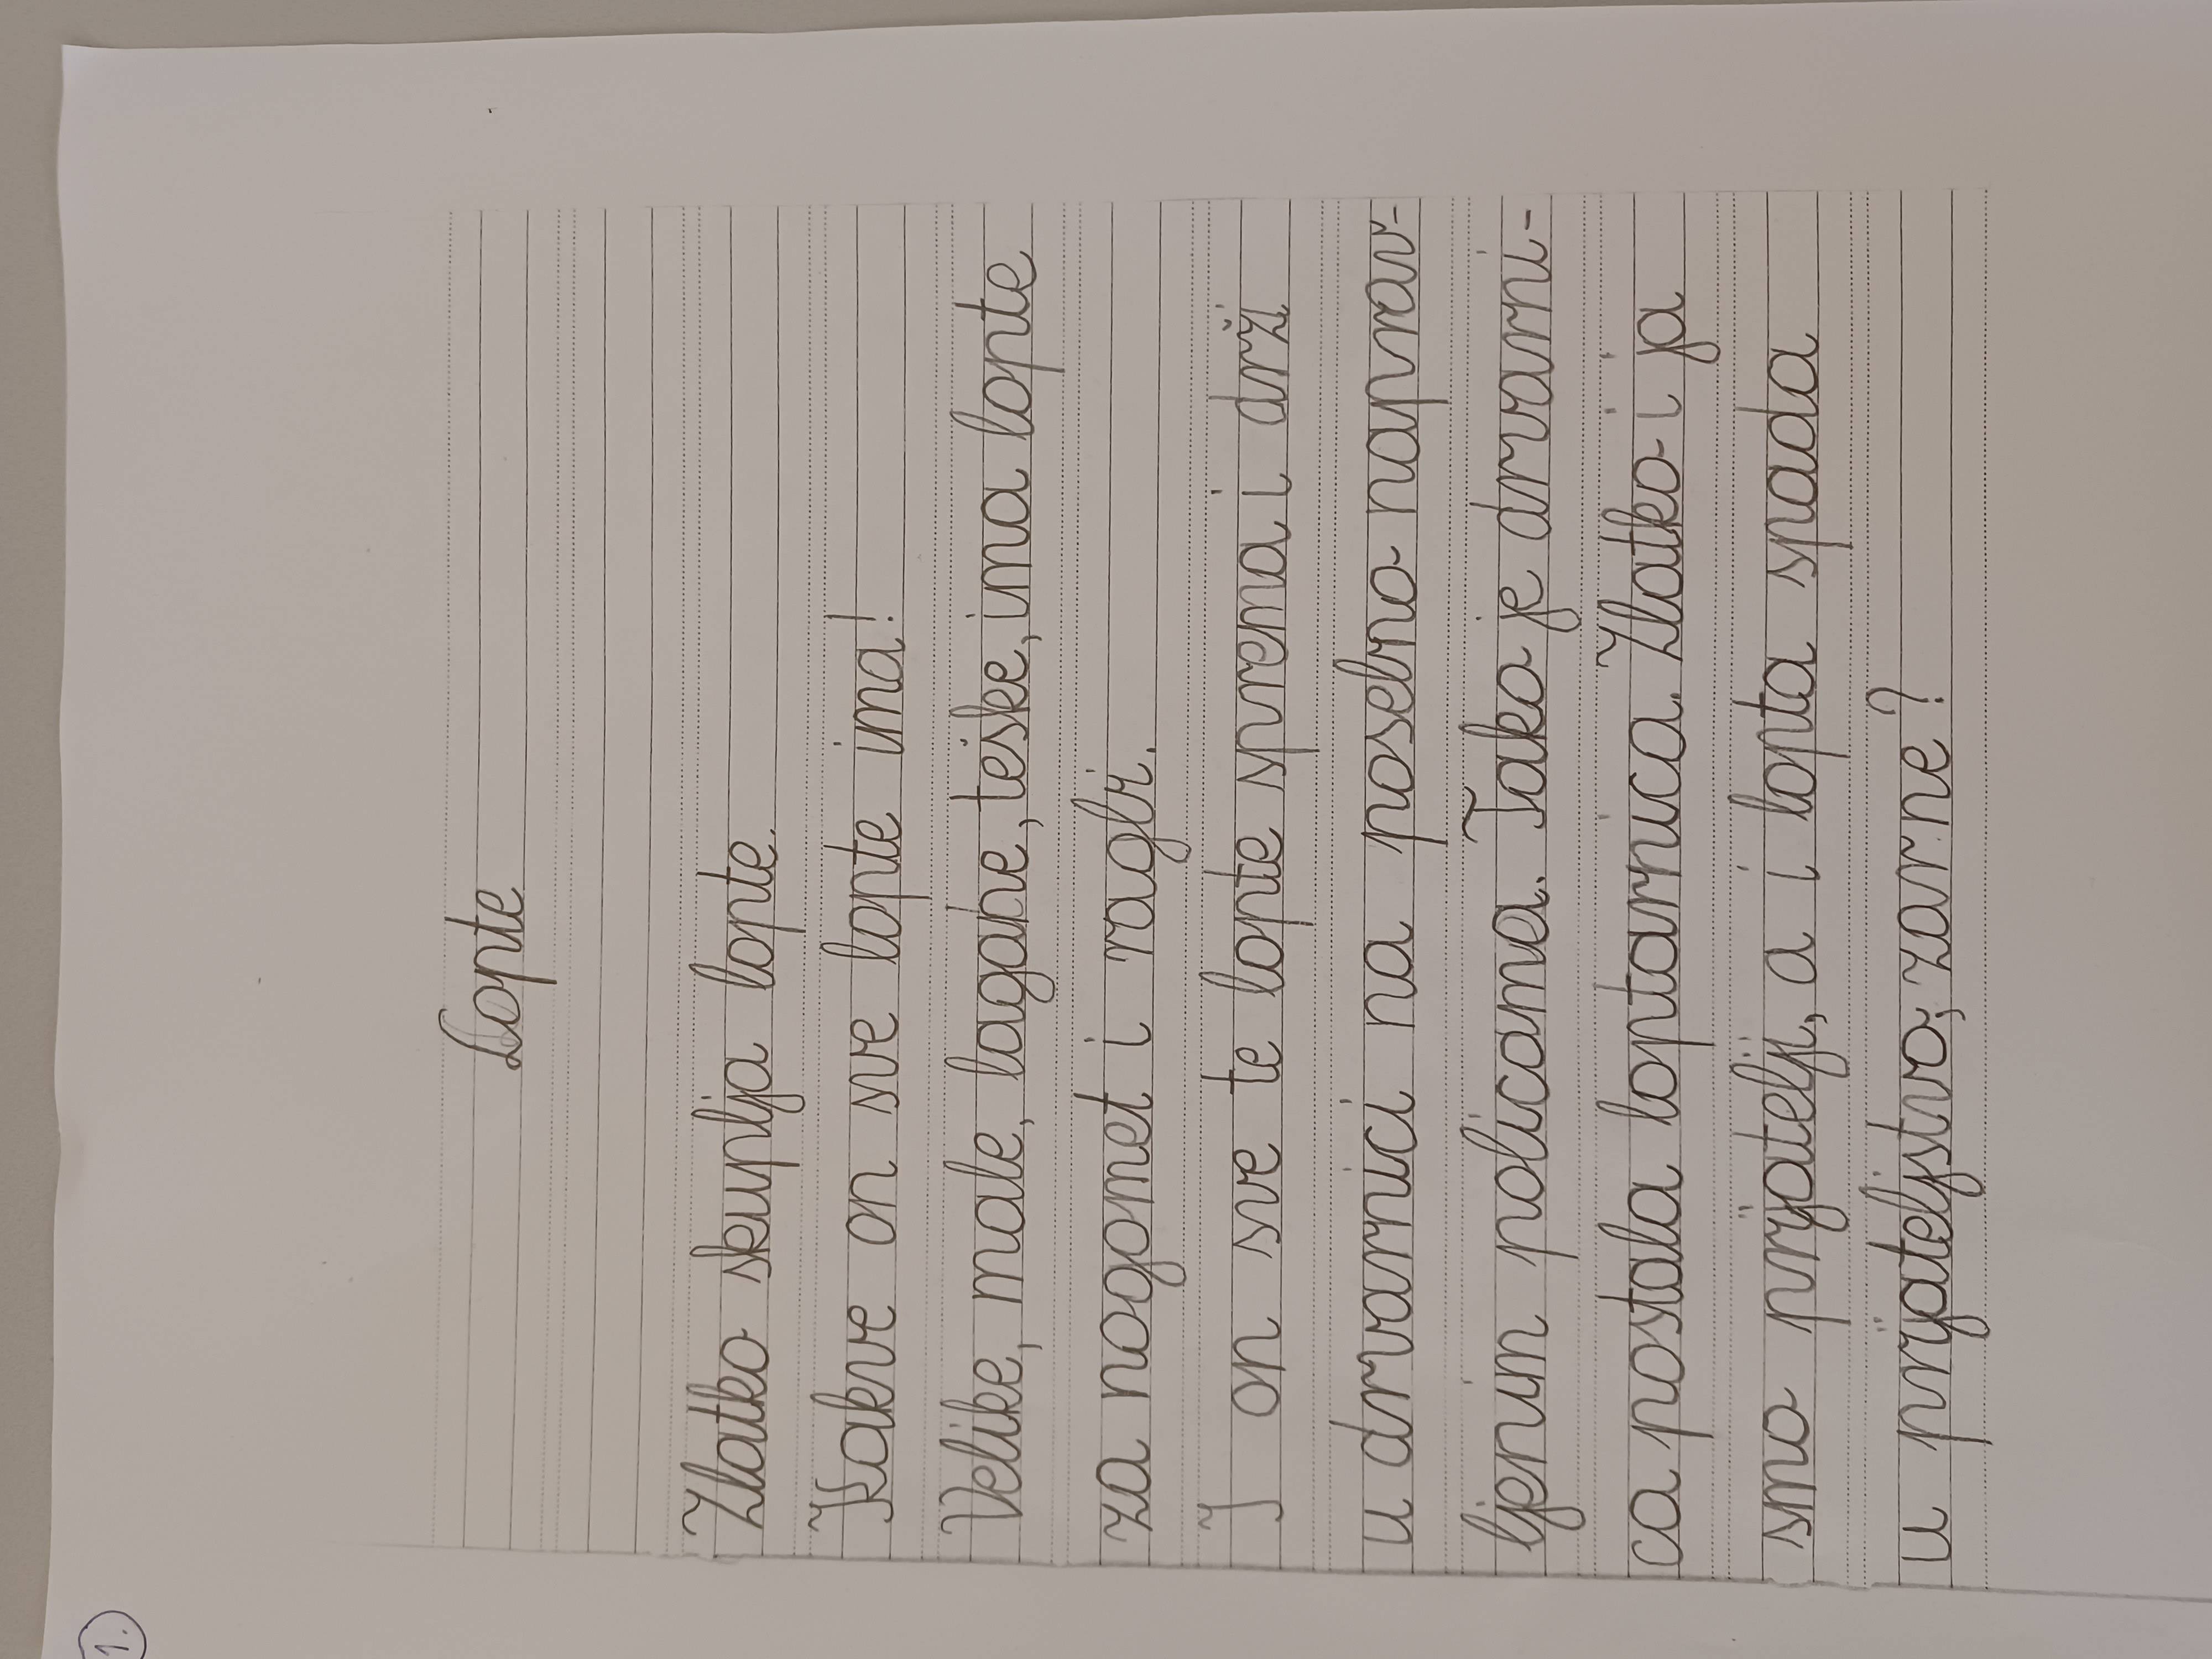 1.
Lopte
Zlatko skuplja lopte.
Kakve on sve lopte ima!
Velike, male, lagane, teške, ima lopte
za nogomet i ragbi.
I on sve te lopte sprema i drži
u drvarnici na posebno naprav-
ljenim policama. Tako je drvarni-
ca postala loptarnica. Zlatko i ja
smo prijatelji, a i lopta spada
u prijateljstvo, zar ne?